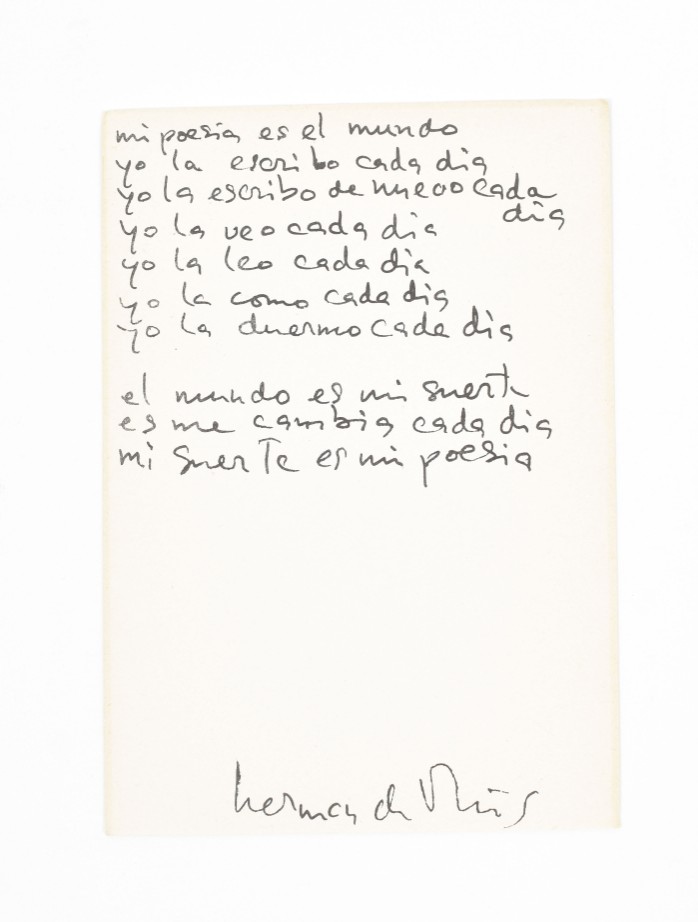 mi poesia es el mundo
yo la escribo cada dia
yo la escribo de nuevo cada
dia
yo la veo cada dia
yo la leo cada dia
yo la como cada dia
yo la duermo cada dia
el mundo es mi suerte
es me cambia cada dia
mi suerte es mi poesia
herman de Vries